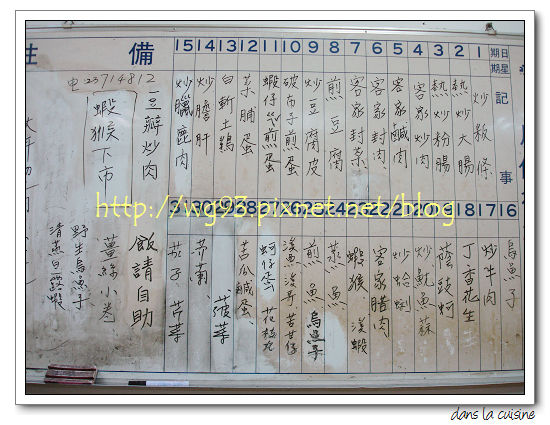 日期
星期
記事
1 2 3 4 5 6 7 8 9 10 11 12 13 14 15
備
炒粄條
熱炒大腸
熱炒粉腸
客家炒肉
客家鹹肉
客家封肉
客家封菜
煎豆腐
炒豆腐皮
破布子煎蛋
菜脯蛋
白斬土雞
炒膽肝
炒臘鹿肉
16 17 18 19 20 21 22
烏魚子
炒牛肉
丁香花生
蔭豉蚵
炒魷魚蘇
炒蛤蜊
客家腊肉
蝦猴、溪蝦
蒸魚
煎魚 烏魚子
蚵仔蛋 花枝丸
苦瓜鹹蛋
菠菜
茄子、芹菜
23714812
豆瓣炒肉
蝦猴下市
飯請自助
薑絲小卷
野生烏魚子
清蒸白露蝦
http://wg93.pixnet.net/blog
dans la cuisine